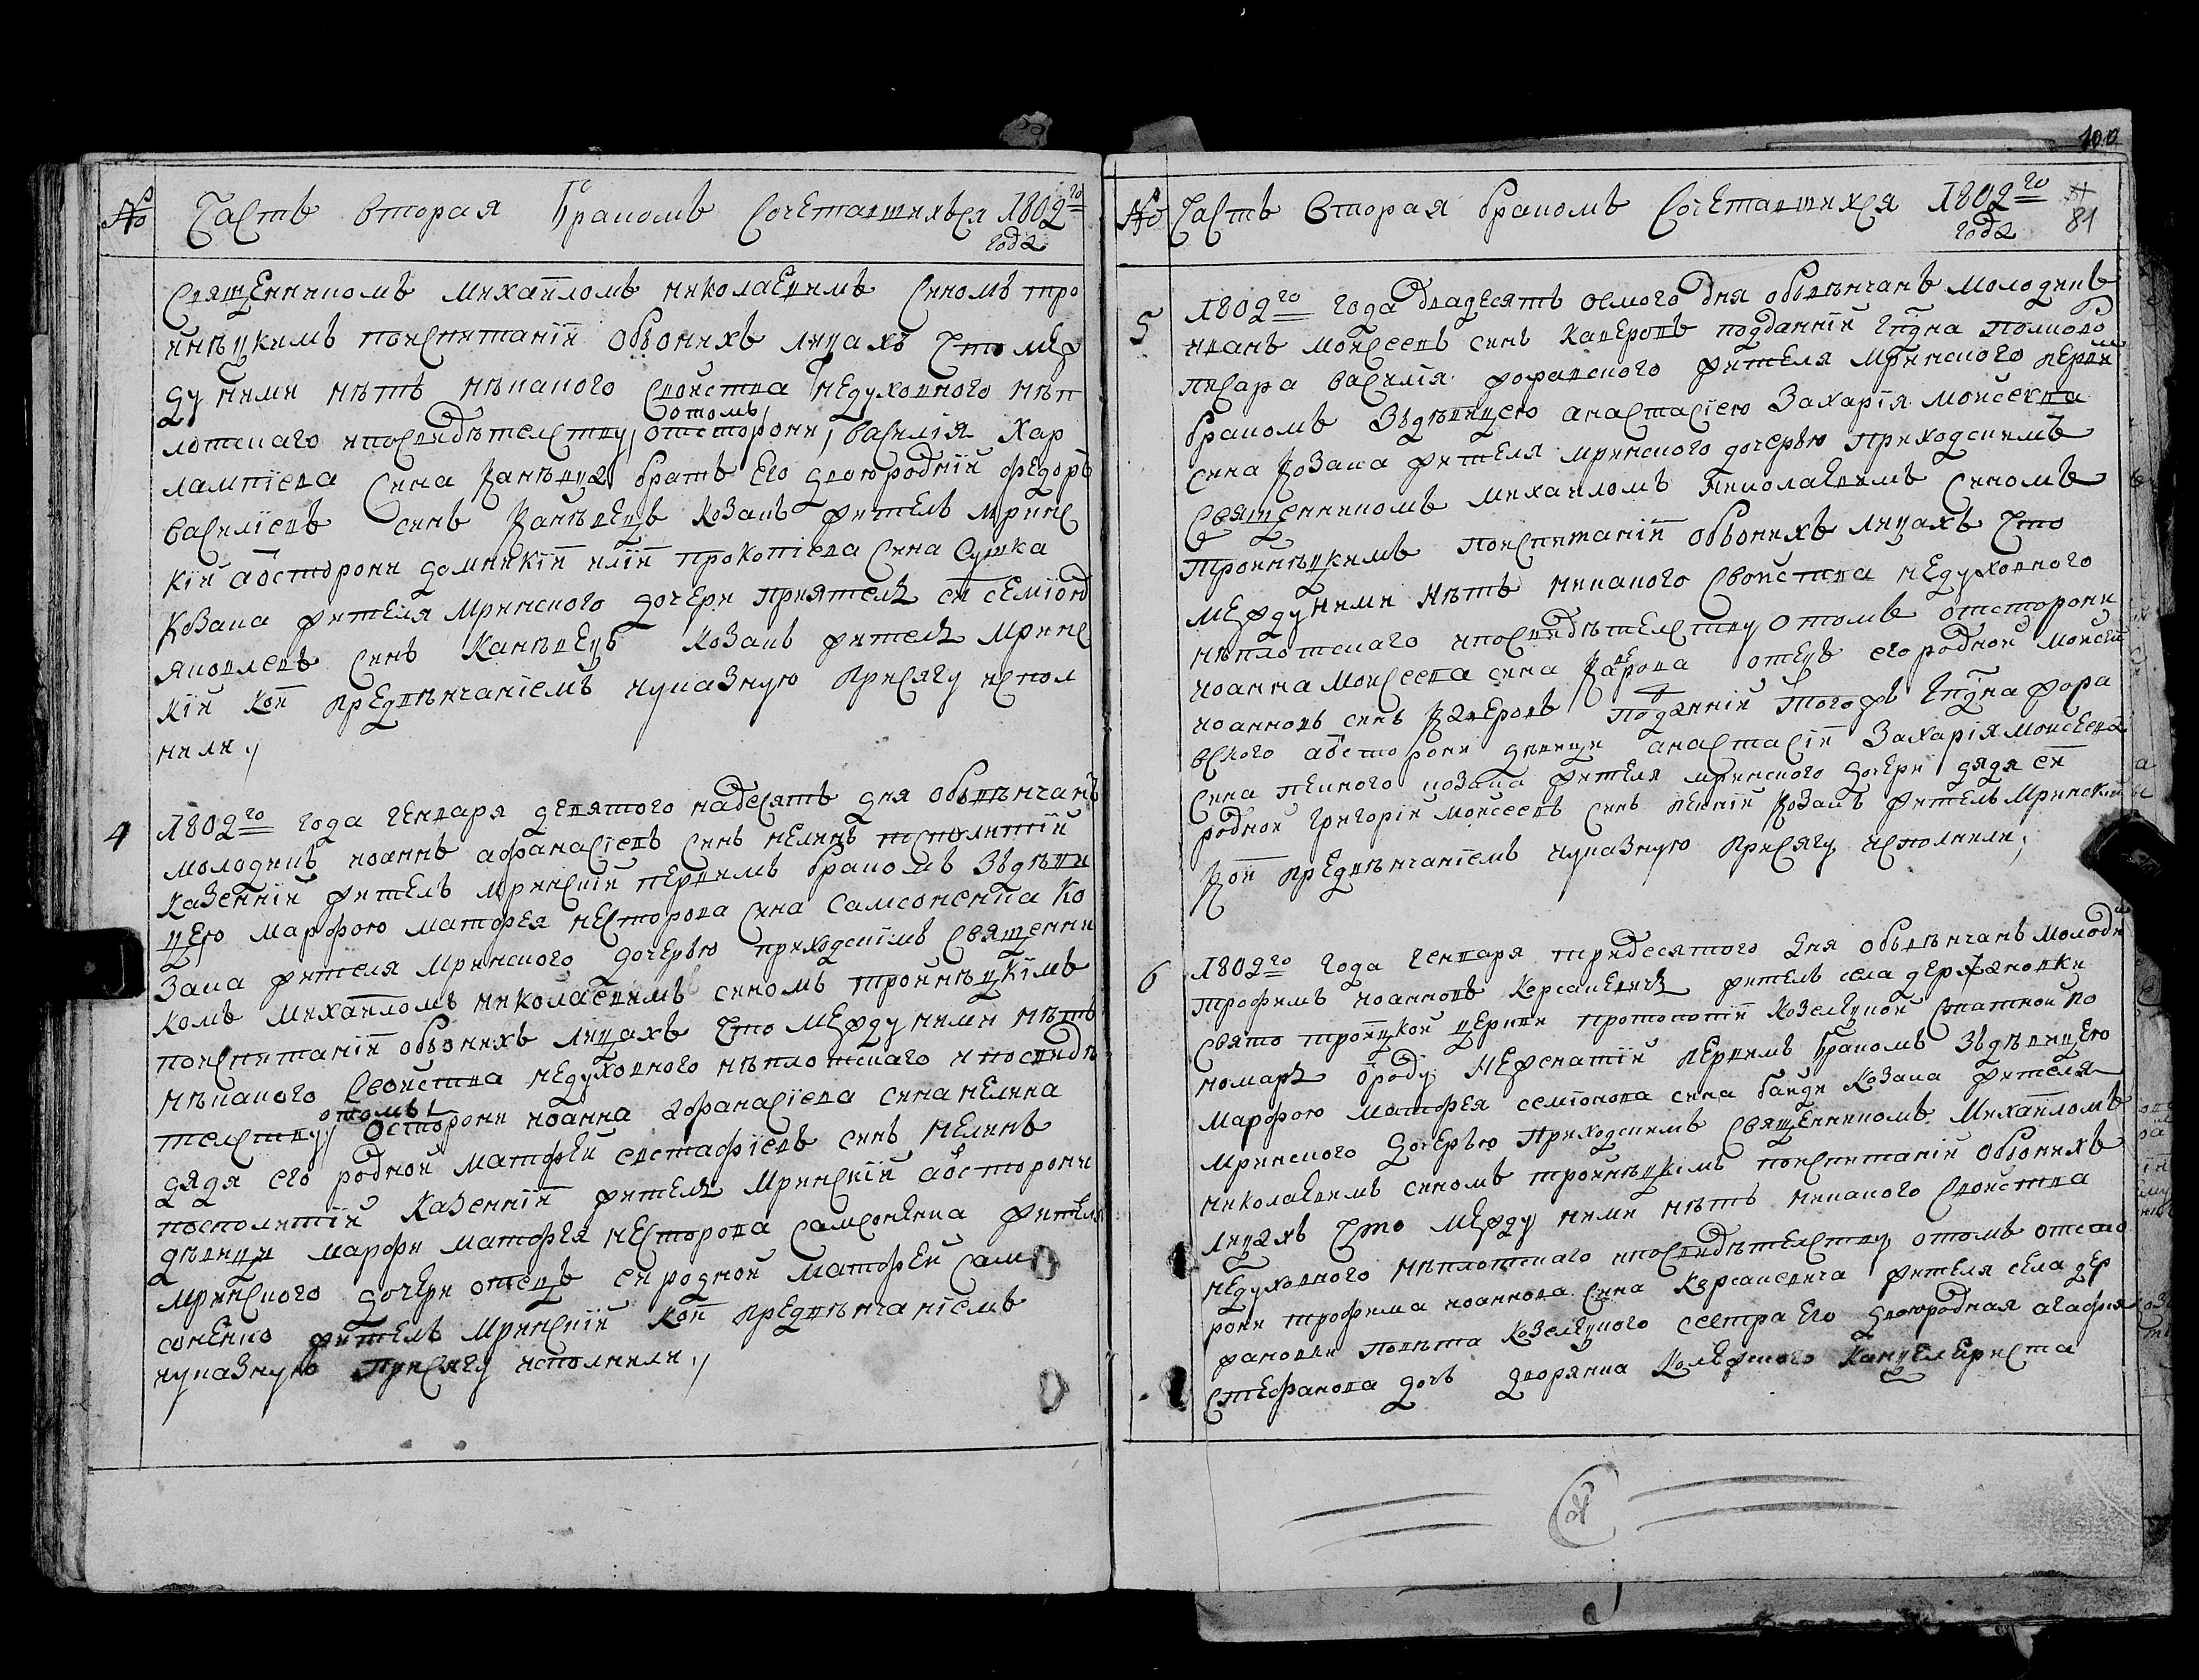 № Часть вторая Бракомъ Сочетавшихься 1802го
года
Священникомъ Михаиломъ Николаевимъ Синомъ тро
инѣцкимъ поиспитаніи обоихъ лицахъ Что меж
ду ними нѣтъ нѣкакого свойства недуховного нѣп
отомъ
лотскаго ипосвидѣтелству отсторони Василія Хар
лампіева Сина Канѣвца братъ Его двоюродній Федоръ
Василіевъ синъ Канѣвецъ Козакъ житель Мринс
кій аотсторони домникіи иліи Прокопіева Сина Сушка
Козака жителя Мринского дочери приятель еи Семіонъ
Яковлевъ Синъ Канѣвецъ Козакъ житель Мринс
кій кои предвѣнчаніемъ иуказную присягу испол
нили
4 1802го года генваря девятого надесять дня обвѣнчанъ
молодикъ иоаннъ афанасіевъ Синъ Нелинъ посполитій
казенній житель мринскій первимъ бракомъ Здѣви
цею Марфою Матфея Несторова Сина Самсоненка Ко
зака жителя Мринского дочерью приходскімъ Священни
комъ Михаиломъ Николаевимъ синомъ тройнѣцкімъ
поиспитаніи обоихъ лицахъ Что между ними нѣтъ
нѣкакого Свойства недуховного нѣплотскаго ипосвидѣ
отомъ
телству Осторони иоанна афанасіева сина Нелина
дядя его родной Матфей евстафіевъ синъ Нелинъ
посполитій Казенній житель Мринскій аотсторони
дѣвици Марфи Матфея Несторова Самсоненка жителя
Мринского дочери отецъ еи родной Матфей Сам
соненко житель Мринскій кои предвѣнчаніемъ
иуказную присягу исполнили
100
№ Часть Вторая бракомъ Сочетавшихся 1802го
года 81
5 1802го года двадесять осмого дня обвѣнчанъ молодикъ
иванъ Моисеевъ синъ Каверовъ подданній Гпдна полково
писара Василія жоравского жителя Мринского перви
бракомъ Здѣвицею анастасіею Захарія Моисеева
Сина Козака жителя мринского дочерью приходскимъ
Священникомъ Михаиломъ Николаевимъ Синомъ
Тройнѣцкимъ поиспитаніи обоихъ лицахъ Что
между ними нѣтъ никакого Свойства недуховного
нѣплотскаго ипосвидѣтелству отомъ отсторони
иоанна Моисеева сина Каверова отецъ его родной Моисей
иоанновъ синъ Каверовъ подданній тогожъ Гпдна жора
вского аотсторони дѣвици анастасіи Захарія Моисеева
Сина пенного козака жителя мринского дочери дядя еи
родной Григорій Моисеевъ Синъ пенній Козакъ житель Мринскій
Кои предвѣнчаніемъ иуказную присягу исполнили
6 1802го года Генваря тридесятого дня обвѣнчанъ молоди
трофимъ иоанновъ Корсакевичъ житель села держановки
Свято троицкой церкви протопопіи Козелецкой статной по
номаръ ороду Нежснатіи первимъ бракомъ Здѣвицею
Марфою Матфея семіонова сина байди Козака жителя
Мринского дочерью Приходскимъ Священникомъ Михаиломъ
Николаевимъ синомъ тройнѣцкімъ поиспитаніи обоихъ
лицахъ Что между ними нѣтъ никакого Свойства
недуховного нѣплотскаго ипосвидѣтелству отомъ отсто
рони трофима иоаннова Сина Корсакевича жителя села дер
жановки повѣта Козелецкого сестра Его двоюродная агафия
Стефанова дочь дворянка Колежского Канцелериста